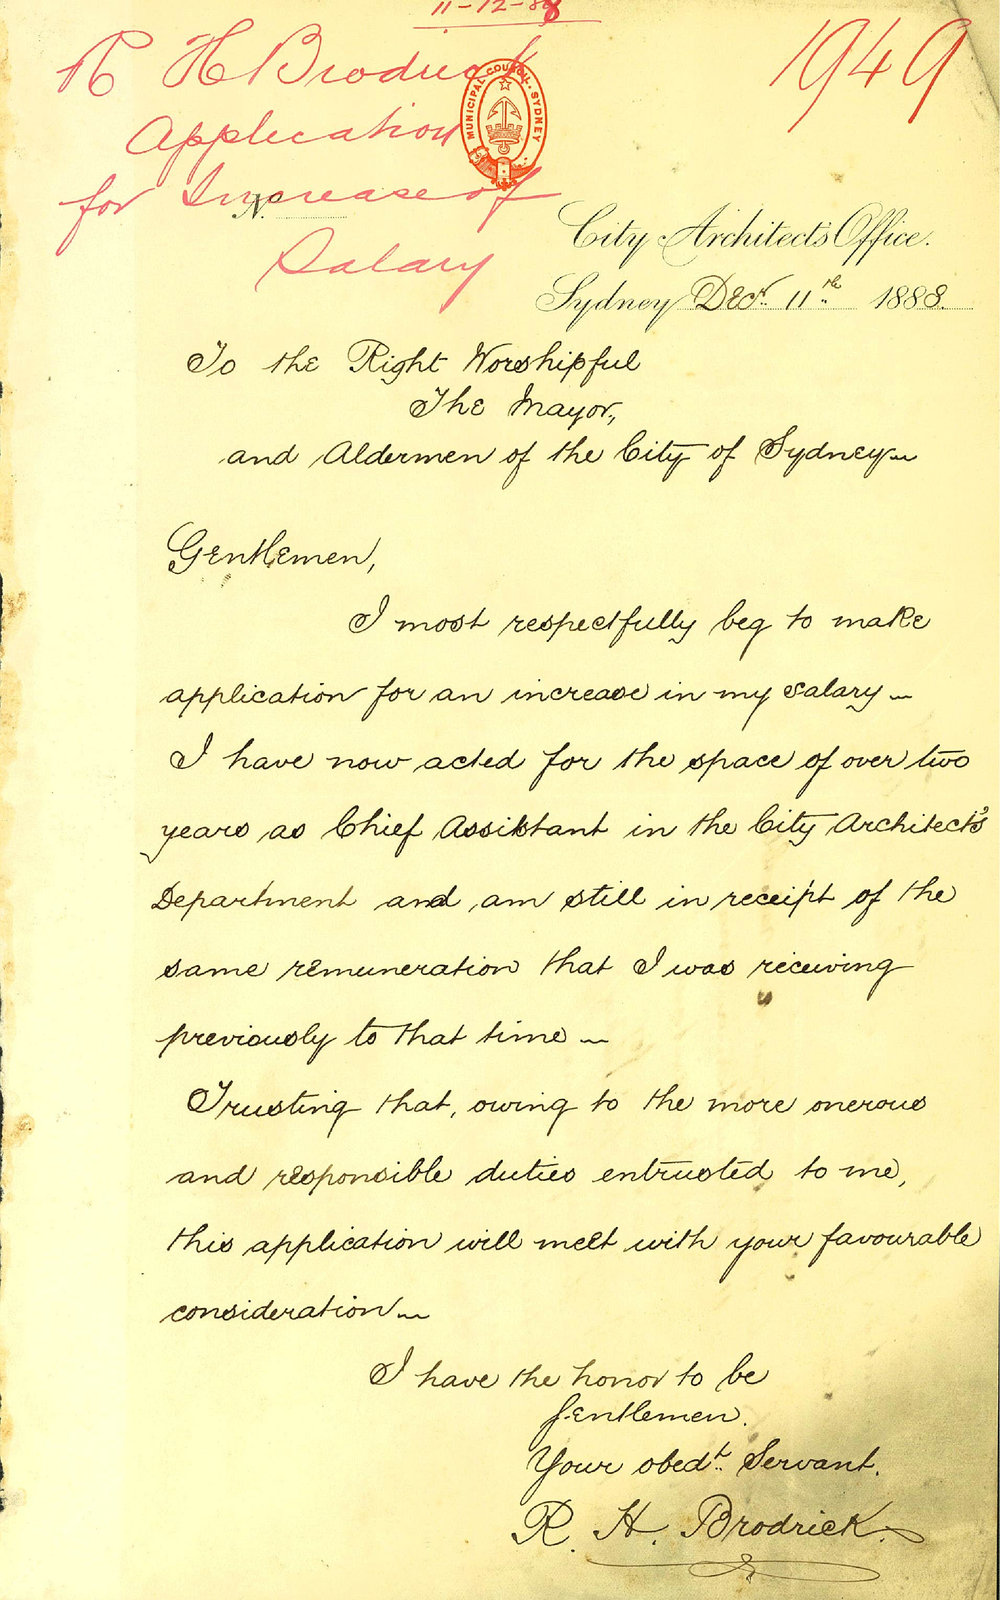 11-12-88
R H Brodrick
1949
Application
for Increase of
Salary
MUNICIPAL COUNCIL. SYDNEY
No.
City Architect's Office.
Sydney Decr. 11th 1888.
To the Right Worshipful
The Mayor,
and Aldermen of the City of Sydney~
Gentlemen,
I most respectfully beg to make
application for an increase in my salary~
I have now acted for the space of over two
years as Chief Assistant in the City Architect's
Department and am still in receipt of the
same remuneration that I was receiving
previously to that time~
Trusting that, owing to the more onerous
and responsible duties entrusted to me,
this application will meet with your favourable
consideration~
I have the honor to be
Gentlemen.
Your obedt. Servant.
R. H. Brodrick.